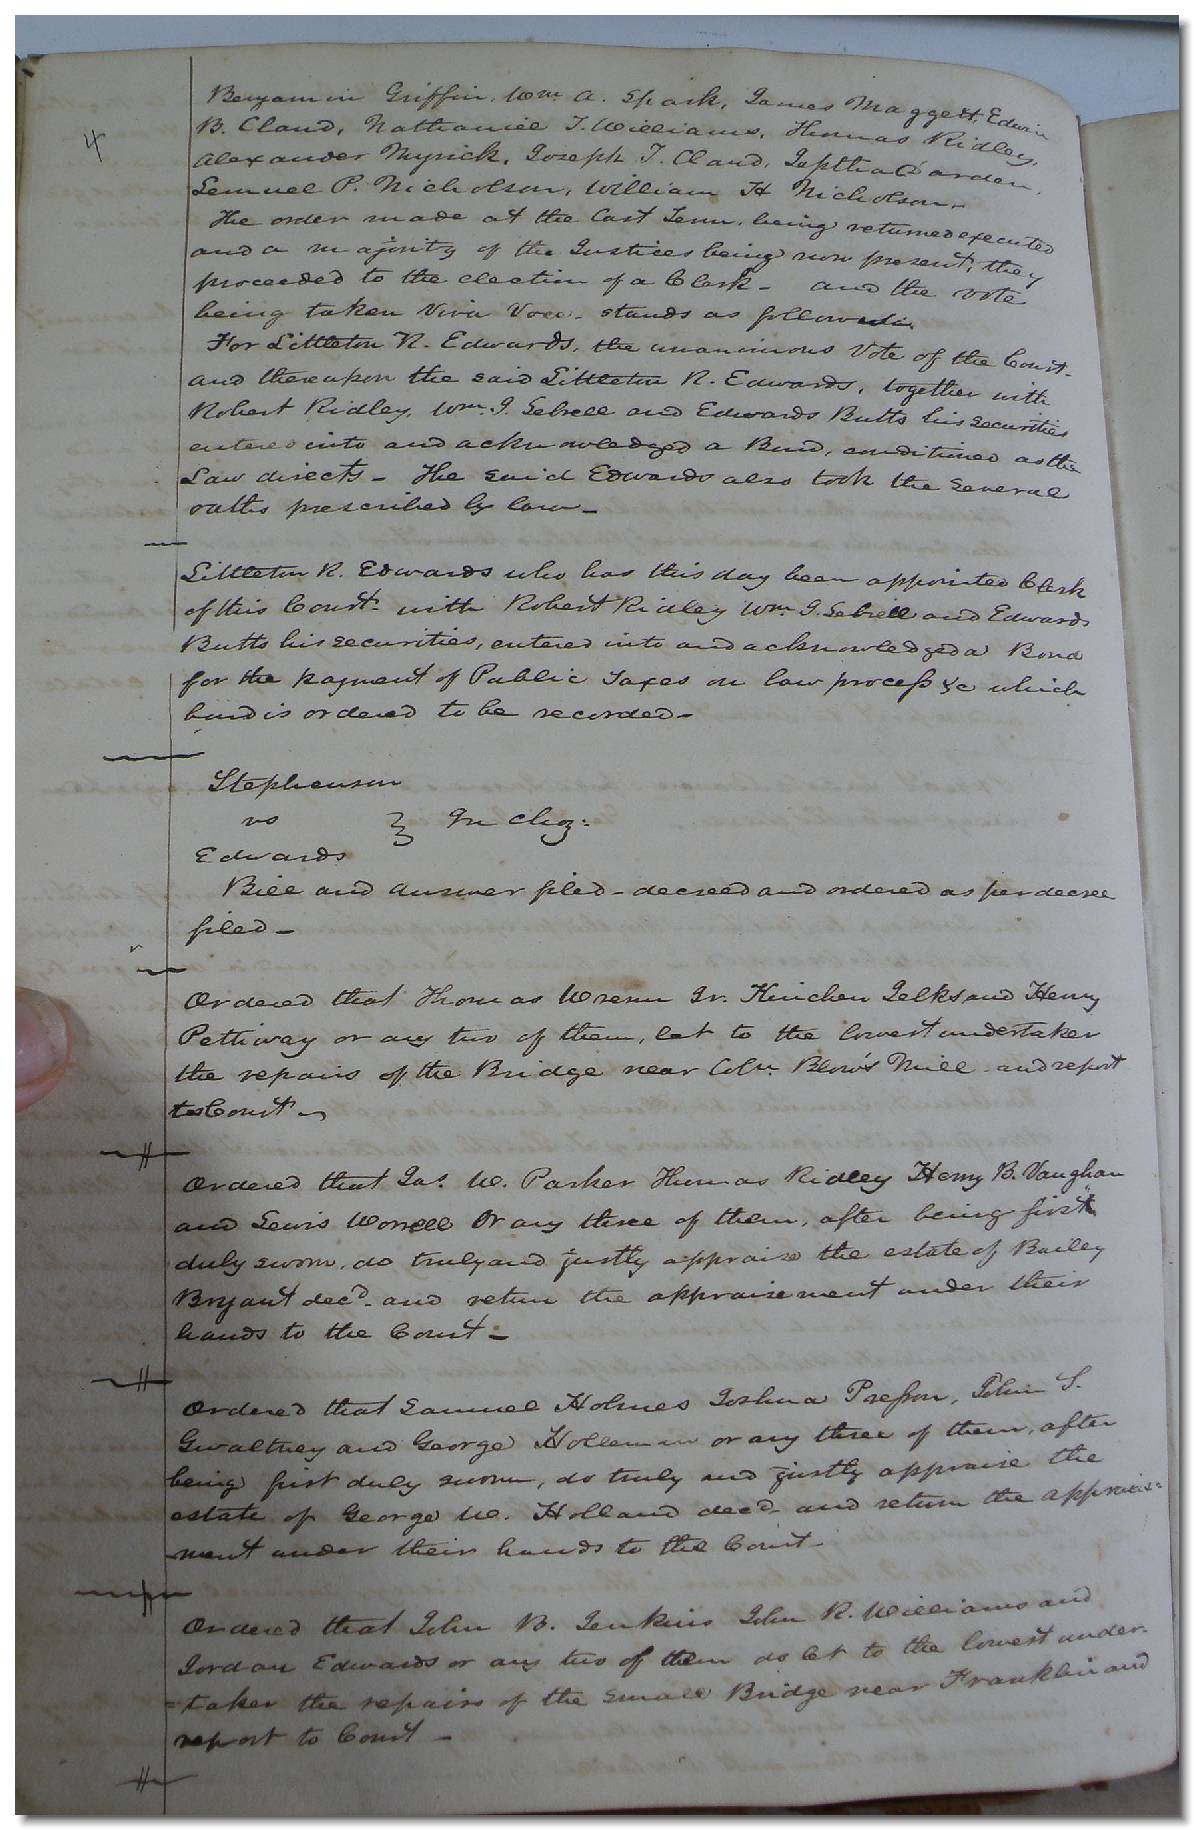 4
Benjamin Griffin, Wm. A. Spark, James Maggett, Edwin
B. Claud, Nathaniel T. Williams, Thomas Ridley,
Alexander Myrick, Joseph T. Claud, Jeptha Darden,
Lemuel P. Nicholson, William H Nicholson.
The order made at the last Term, being returned executed
and a majority of the Justices being now present, they
proceeded to the election of a Clerk - and the vote
being taken Viva Voce - stands as follows
For Littleton R. Edwards, the unanimous Vote of the Court -
and thereupon the said Littleton R. Edwards, together with
Robert Ridley, Wm. J. Sebrell and Edwards Butts his securities
entered into and acknowledged a Bond, conditioned as the
Law directs - The said Edwards also took the several
oaths prescribed by law -
Littleton R. Edwards who has this day been appointed Clerk
of this Court with Robert Ridley Wm J. Sebrell and Edwards
Butts his securities, entered into and acknowledged a Bond
for the payment of Public Taxes on law process &c which
bond is ordered to be recorded -
Stephenson
vs } In Chy:
Edwards
Bill and Answer filed - decreed and ordered as per decree
filed -
Ordered that Thomas Wrenn Jr. Kinchen Jelks and Henry
Pettiway or any two of them, let to the lowest undertaker
the repairs of the Bridge near Colo. Blow's Mill and report
to Court -
Ordered that Jas. W. Parker Thomas Ridley Henry B. Vaughan
and Lewis Worrell or any three of them, after being first
duly sworn, do truly and justly appraise the estate of Bailey
Bryant decd. and return the appraisement under their
hands to the Court -
Ordered that Samuel Holmes Joshua Presson, John S.
Gwaltney and George Holleman or any three of them, after
being first duly sworn, do truly and justly appraise the
estate of George W. Holland decd - and return the appraise=
ment under their hands to the Court -
Ordered that John B. Jenkins John R. Williams and
Jordan Edwards or any two of them do let to the lowest under-
=taker the repairs of the small Bridge near Franklin and
report to Court -